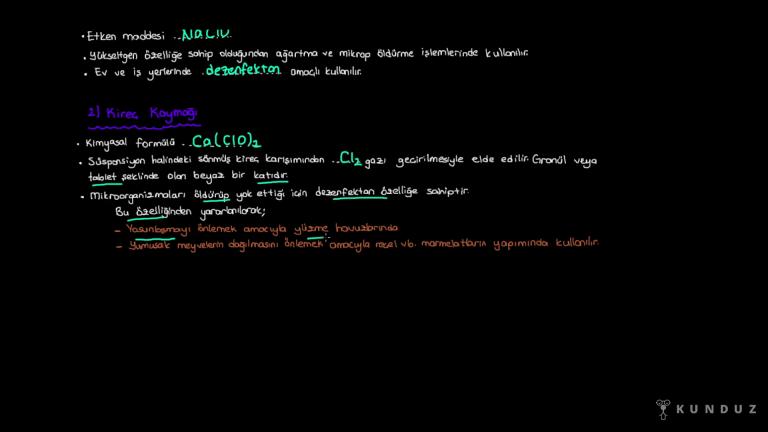 • Etken maddesi ..NaClO..
• Yükseltgen özelliğe sahip olduğundan ağartma ve mikrop öldürme işlemlerinde kullanılır.
• Ev ve iş yerlerinde ..dezenfektan.. amaçlı kullanılır.
2) Kireç Kaymağı
• Kimyasal formülü ..Ca(ClO)2
• Süspansiyon halindeki sönmüş kireç karışımından ..Cl2 gazı geçirilmesiyle elde edilir. Granül veya
tablet şeklinde olan beyaz bir katıdır.
• Mikroorganizmaları öldürüp yok ettiği için dezenfektan özelliğe sahiptir.
Bu özelliğinden yararlanılarak;
- Yosunlaşmayı önlemek amacıyla yüzme havuzlarında
- Yumuşak meyvelerin dağılmasını önlemek amacıyla reçel vb. marmelatların yapımında kullanılır.
KUNDUZ